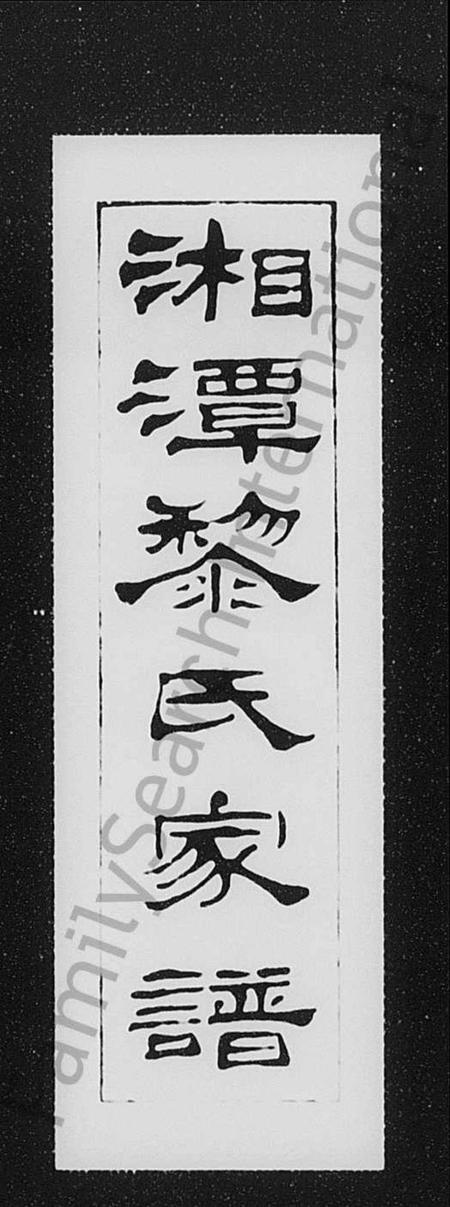 湘潭黎氏家譜
FamilySearch International